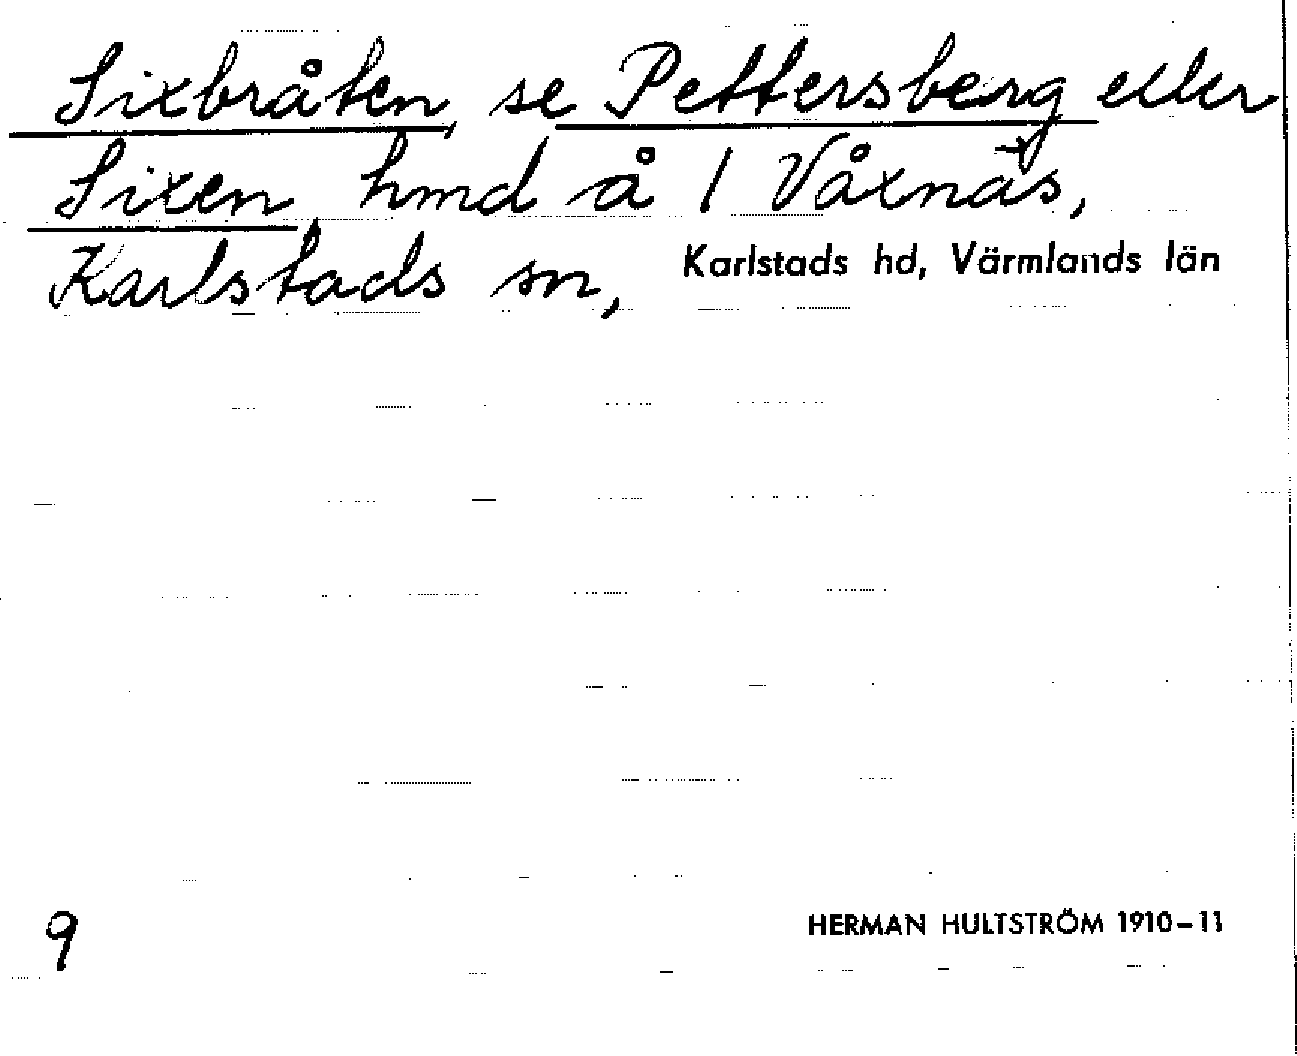 Sixbråten, se Pettersberg eller
Sixen, hmd å 1 Våxnäs,
Karlstads sn, Karlstads hd, Värmlands län
9
HERMAN HULTSTRÖM 1910-11